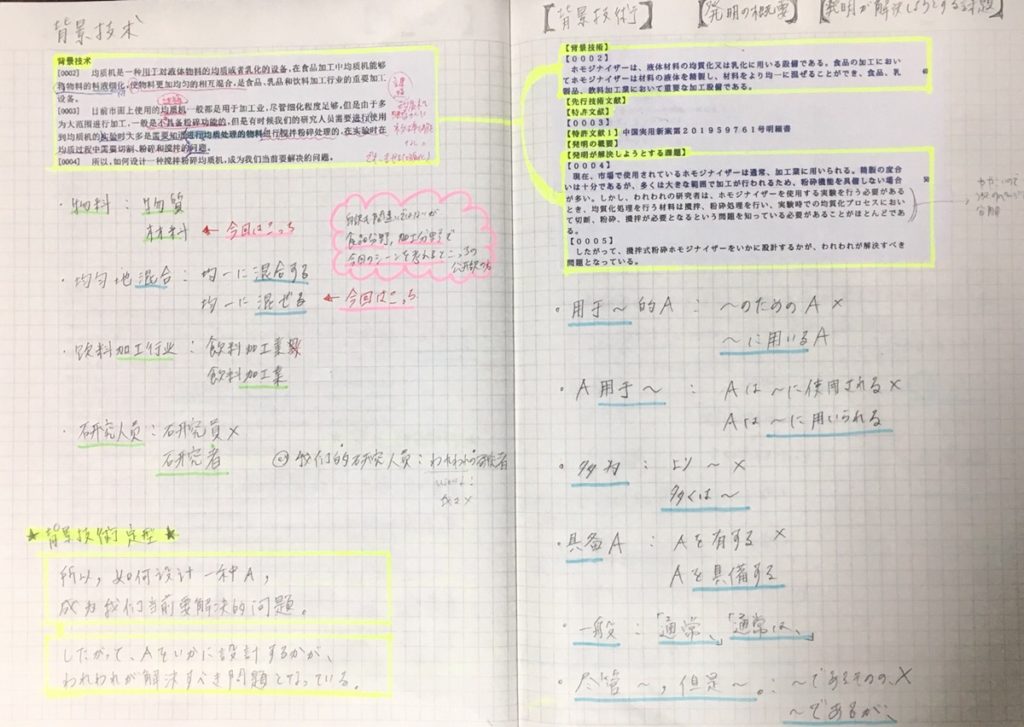 背景技术
背景技术
[0002] 均质机是一种用于对液体物料的均质或者乳化的设备,在食品加工中均质机能够
将物料的料液细化,使物料更加均匀的相互混合,是食品、乳品和饮料加工行业的重要加工
设备。
[0003] 目前市面上使用的均质机一般都是用于加工业,尽管细化程度足够,但是由于多
为大范围进行加工,一般是不具备粉碎功能的,但是有时候我们的研究人员需要进行使用
到均质机的实验时大多是需要知道进行均质处理的物料进行搅拌粉碎处理的,在实验时在
均质过程中需要切割、粉碎和搅拌的问题。
[0004] 所以,如何设计一种搅拌粉碎均质机,成为我们当前要解决的问题。
・物料:物質
材料 ← 今回はこっち
・均匀地混合:均一に混合する
均一に混ぜる ← 今回はこっち
食品分野,加工分野で
・饮料加工行业:飲料加工業界
飲料加工業
・研究人员:研究員×
研究者
我们的研究人员:われわれの研究者
★背景技術定型★
所以,如何设计一种A,
成为我们当前要解决的问题。
したがって、Aをいかに設計するかが、
われわれが解決すべき問題となっている。
【背景技術】 【発明の概要】 【発明が解決しようとする課題】
【背景技術】
【0002】
ホモジナイザーは、液体材料の均質化又は乳化に用いる設備である。食品の加工におい
てホモジナイザーは材料の液体を精製し、材料をより均一に混ぜることができ、食品、乳
製品、飲料加工業において重要な加工設備である。
【先行技術文献】
【特許文献】
【0003】
【特許文献1】中国実用新案第201959761号明細書
【発明の概要】
【発明が解決しようとする課題】
【0004】
現在、市場で使用されているホモジナイザーは通常、加工業に用いられる。精製の度合
いは十分であるが、多くは大きな範囲で加工が行われるため、粉砕機能を具備しない場合
が多い。しかし、われわれの研究者は、ホモジナイザーを使用する実験を行う必要がある
とき、均質化処理を行う材料は攪拌、粉砕処理を行い、実験時での均質化プロセスにおい
て切断、粉砕、攪拌が必要となるという問題を知っている必要があることがほとんどであ
る。
【0005】
したがって、攪拌式粉砕ホモジナイザーをいかに設計するかが、われわれが解決すべき
問題となっている。
・用于~的A : ~のためのA ×
~に用いるA
・A用于~ : Aは~に使用される×
Aは~に用いられる
・多为 : より~ ×
多くは~
・具备A : Aを有する ×
Aを具備する
・一般 : 「通常、」「通常は、」
・尽管~,但是~。: ~であるものの、×
~であるが、